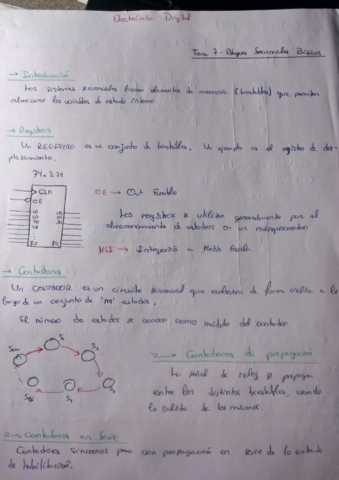 Electrónica Digital
Tema 7 - Bloques Secuenciales Básicos
→ Introducción
Los sistemas secuenciales tienen elementos de memoria (biestables) que permiten
almacenar las variables de estado
→ Registros
Un REGISTRO es un conjunto de biestables. Un ejemplo es el registro de des-
plazamiento.
74x374
CLK
OE
OE → Out Enable
Los registros se utilizan generalmente para el
almacenamiento de estados en un microprocesador
MSI → Integración a Media Escala
→ Contadores
Un CONTADOR es un circuito secuencial que evoluciona de forma cíclica a lo
largo de un conjunto de 'm' estados.
El número de estados se conoce como módulo del contador.
→ Contadores de propagación
La señal de reloj se propaga
entre los distintos biestables, usando
la salida de los mismos
→ Contadores en serie
Contadores síncronos pero con propagación en serie de la entrada
de habilitación.